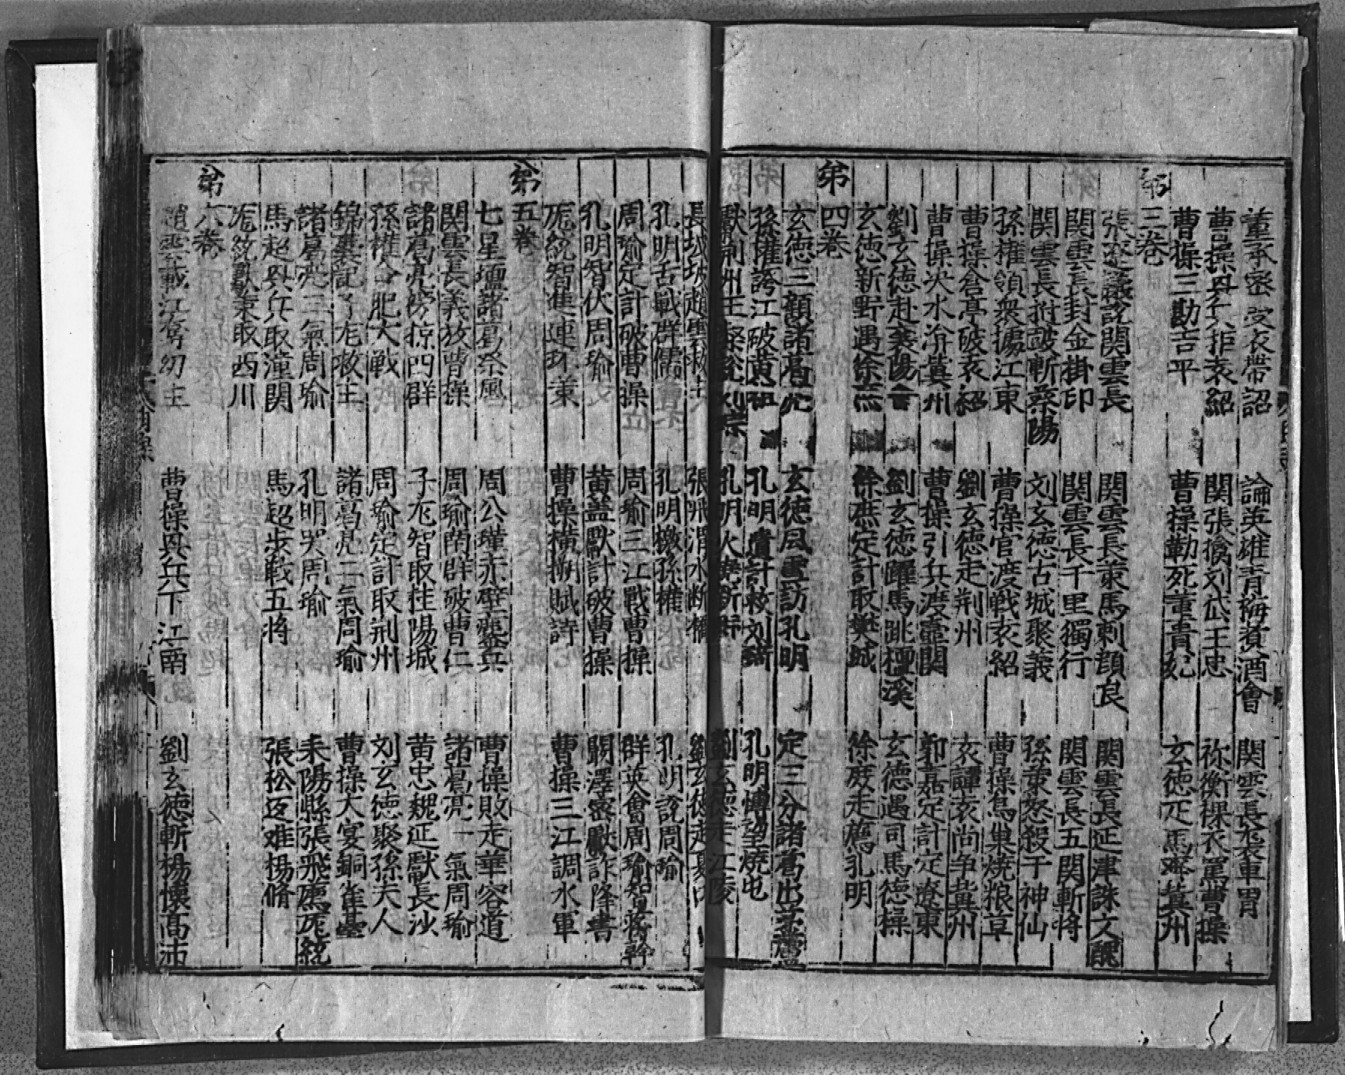 董承密受衣帶詔 論英雄青梅煑酒會 関雲長襲車胄
曹操興兵拒袁紹 関張擒刘岱王忠 祢衡裸衣罵曹操
曹操三勘吉平 曹操勒死董貴妃 玄徳疋馬奔冀州
第三卷
張遼議説関雲長 関雲長策馬刺顔良 関雲長延津誅文醜
関雲長封金掛印 関雲長千里獨行 関雲長五関斬将
関雲長擂皷斬蔡陽 刘玄徳古城聚義 孫策怒殺于神仙
孫權領衆據江東 曹操官渡戦袁紹 曹操烏巢焼粮草
曹操倉亭破袁紹 劉玄徳走荆州 袁譚袁尚争冀州
曹操决水渰冀州 曹操引兵渡壷関 郭嘉定計定遼東
劉玄徳赴襄陽會 劉玄徳躍馬跳檀溪 玄徳遇司馬徳操
玄徳新野遇徐庶 徐庶定計取樊城 徐庶走薦孔明
第四卷
玄徳三顧諸葛亮 玄徳風雪訪孔明 定三分諸葛出茅廬
孫權誇江破黄祖 孔明遺計救刘琦 孔明博望燒屯
獻荆州王粲説刘琮 孔明火燒新野 劉玄徳走江陵
長坂坡趙雲救主 張飛渭水断橋 劉玄徳走夏口
孔明舌戰群儒 孔明激孫權 孔明說周瑜
周瑜定計破曹操 周瑜三江戰曹操 群英會周瑜智蒋幹
孔明智伏周瑜 黄盖獻計破曹操 闞澤密獻詐降書
庞統智進連环策 曹操横槊賦詩 曹操三江調水軍
第五卷
七星壇諸葛祭風 周公瑾赤壁鏖兵 曹操敗走華容道
関雲長義放曹操 周瑜南群破曹仁 諸葛亮一氣周瑜
諸葛亮傍掠四群 子龙智取桂陽城 黄忠魏延獻長沙
孫權合肥大戦 周瑜定計取荆州 刘玄徳聚孫夫人
錦囊記子龙救主 諸葛亮二氣周瑜 曹操大宴銅雀臺
諸葛亮三氣周瑜 孔明哭周瑜 耒陽縣張飛薦庞統
馬超興兵取潼関 馬超步戰五将 張松反难揚脩
庞統獻策取西川
第六卷
趙雲截江奪幼主 曹操興兵下江南 劉玄徳斬楊懐髙沛